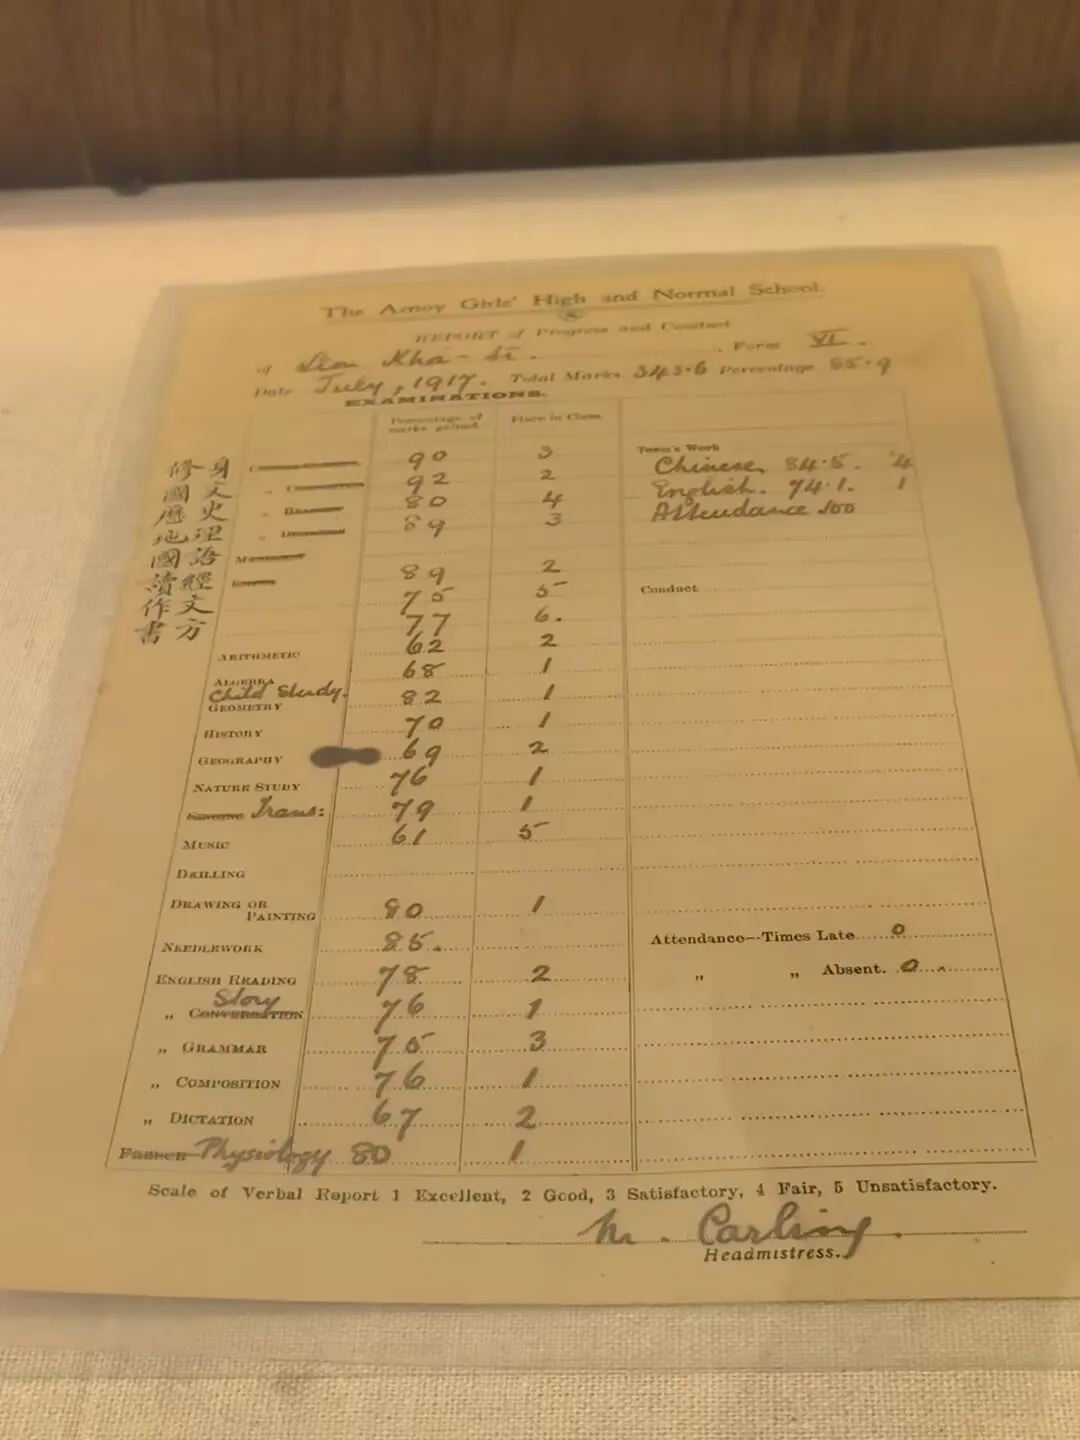 The Amoy Girls' High and Normal School.
REPORT of Progress and Conduct
of Lim Kha-si. Form VI.
Date July, 1917. Total Marks 343.6 Percentage 85.9
EXAMINATIONS.
Percentage of marks gained. Place in Class.
Term's Work
修身 90 3 Chinese 84.5. 4
國文 92 2 English. 74.1. 1
歷史 80 4 Attendance 100
地理 89 3
國語
讀經 89 2
作文 75 5 Conduct
書方 77 6.
ARITHMETIC 62 2
ALGEBRA 68 1
Child Study. 82 1
GEOMETRY
HISTORY 70 1
GEOGRAPHY 69 2
NATURE STUDY 76 1
Trans: 79 1
MUSIC 61 5
DRILLING
DRAWING OR PAINTING 80 1
NEEDLEWORK 85. Attendance—Times Late 0
ENGLISH READING 78 2 „ „ Absent. 0
Story
„ CONVERSATION 76 1
„ GRAMMAR 75 3
„ COMPOSITION 76 1
„ DICTATION 67 2
Physiology 80 1
Scale of Verbal Report 1 Excellent, 2 Good, 3 Satisfactory, 4 Fair, 5 Unsatisfactory.
M. Carling.
Headmistress.